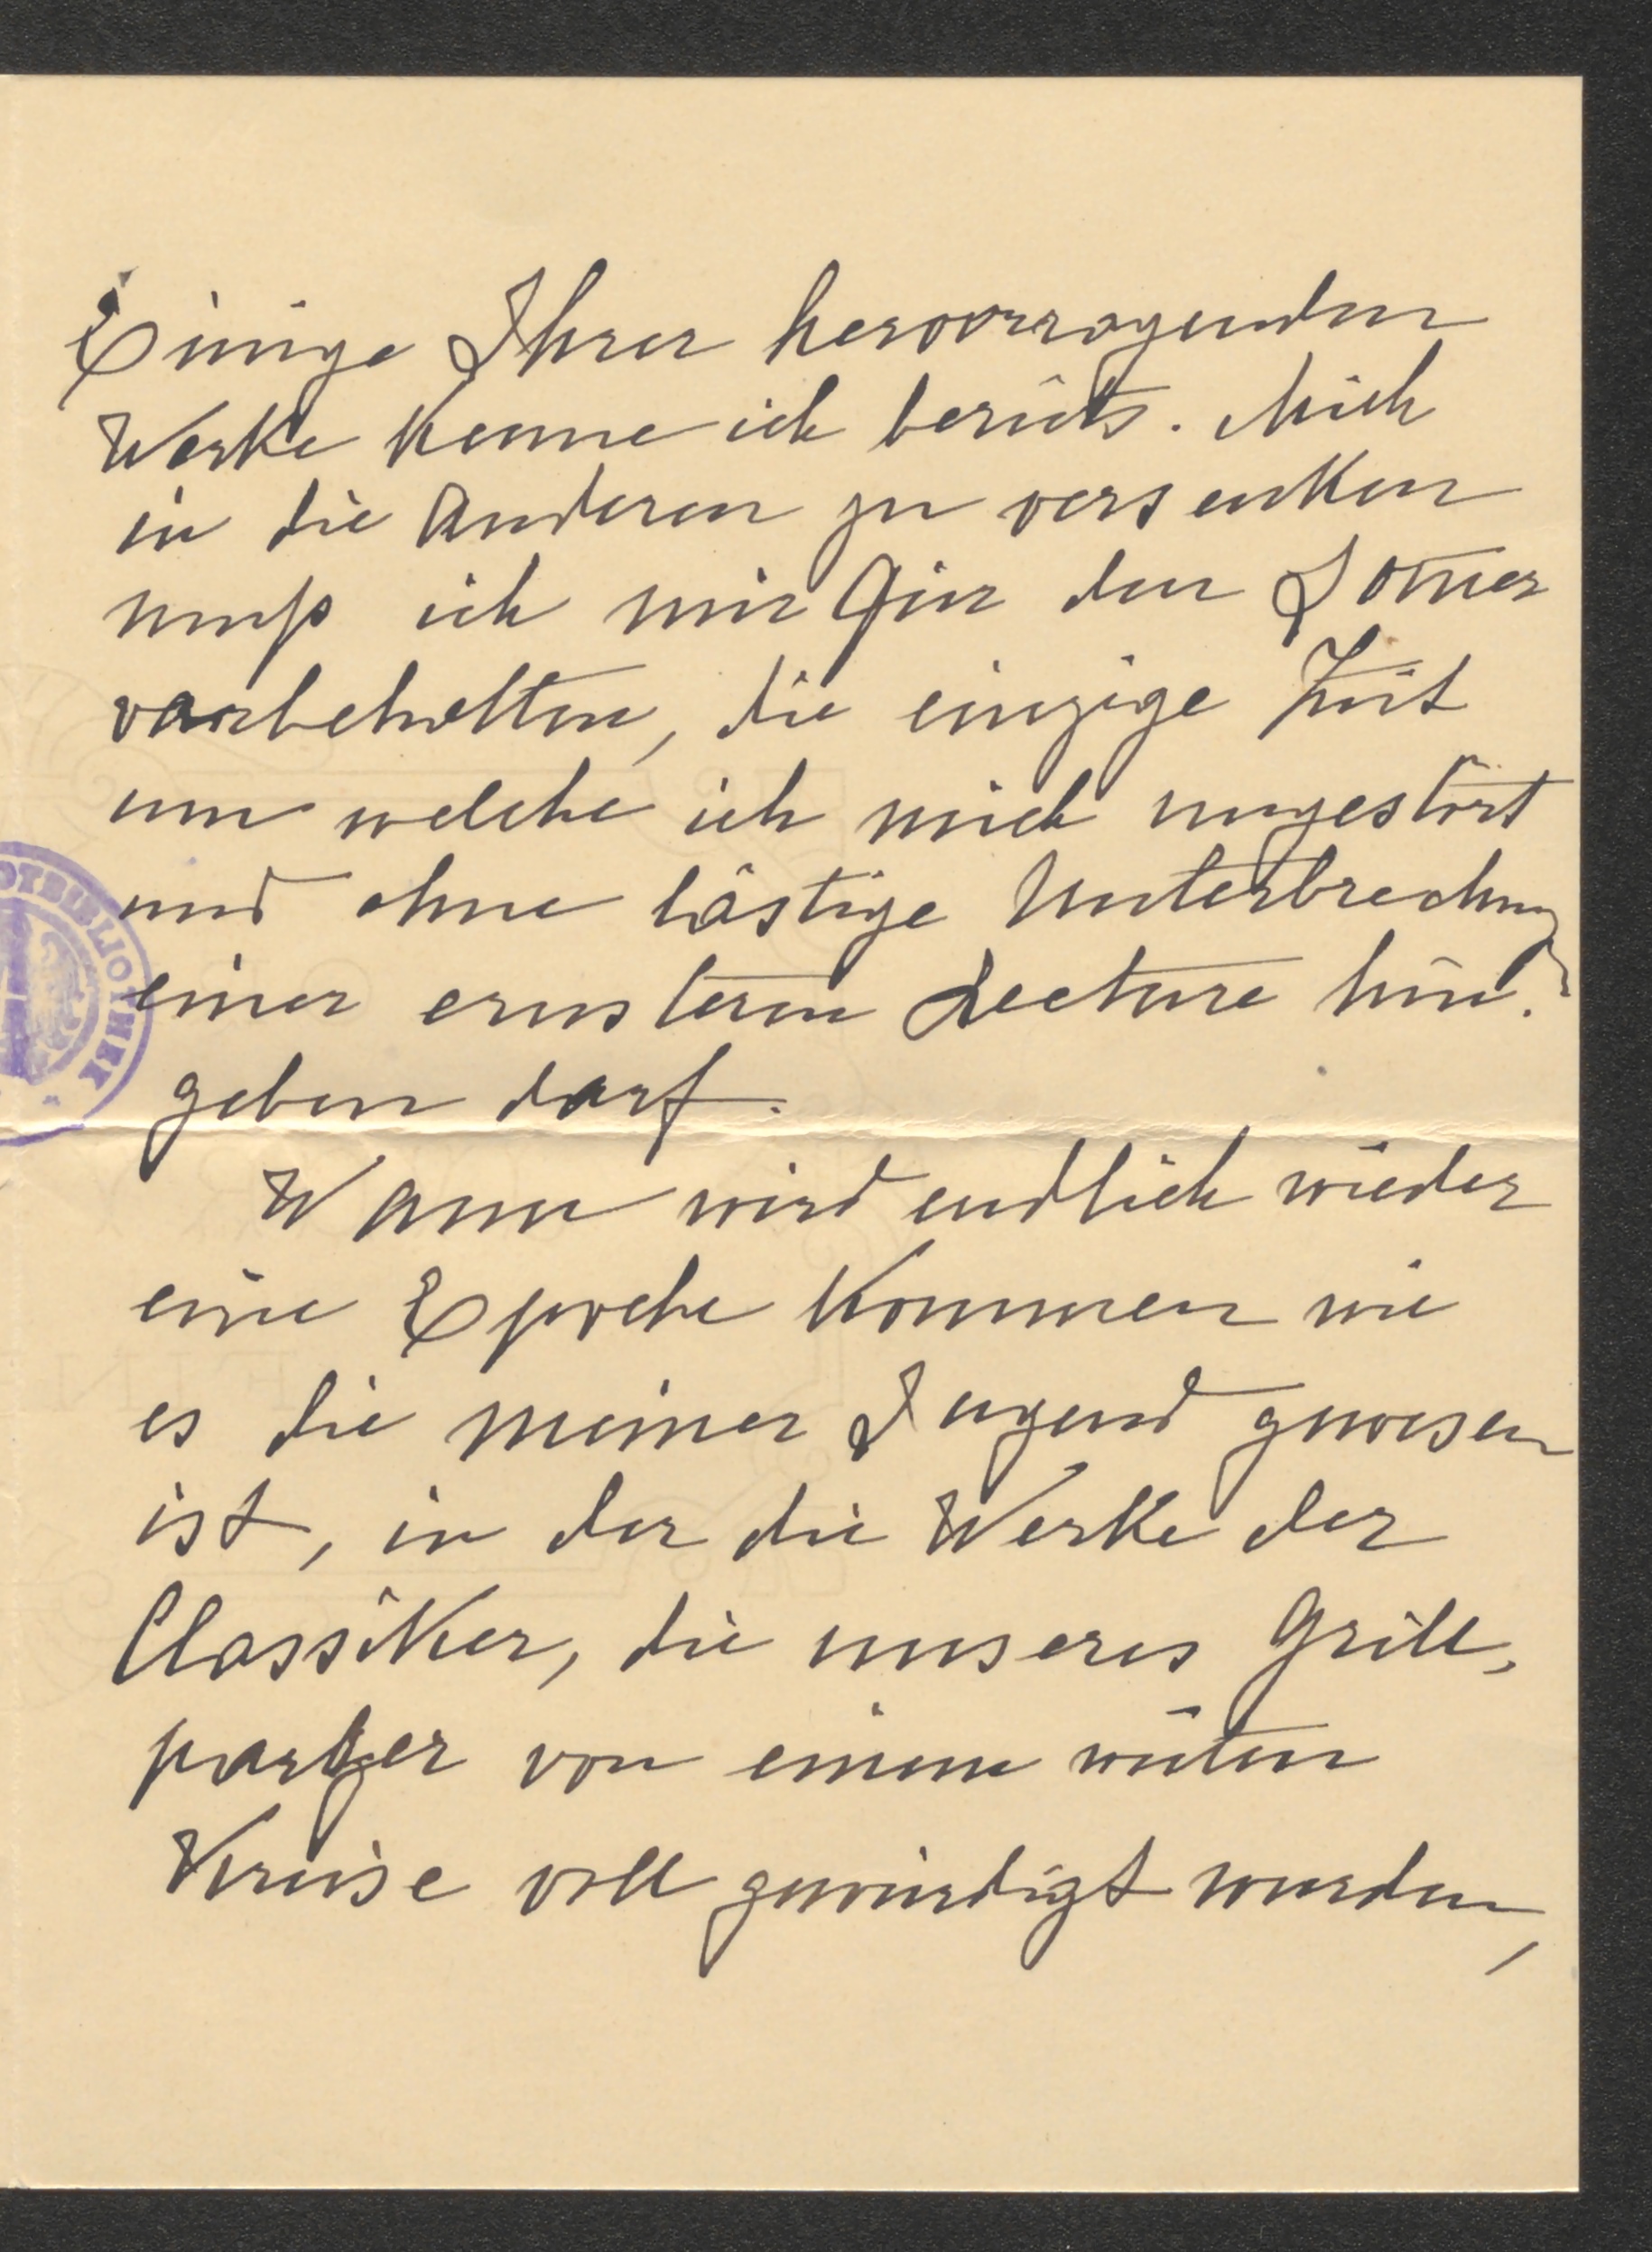 Einige Ihrer hervorragenden
Werke kenne ich bereits. Mich
in die Anderen zu versenken
muß ich mir für den Som̄er
vorbehalten, die einzige Zeit
um welche ich mich ungestört
und ohne lästige Unterbrechung
einer ernsteren Lecture hin-
geben darf.
Wann wird endlich wieder
eine Epoche kommen wie
es die meiner Jugend gewesen
ist, in der die Werke der
Classiker, die unseres Grill-
parzer von einem weiten
Kreise voll gewürdigt wurden,
OTBIBLIOTHEK